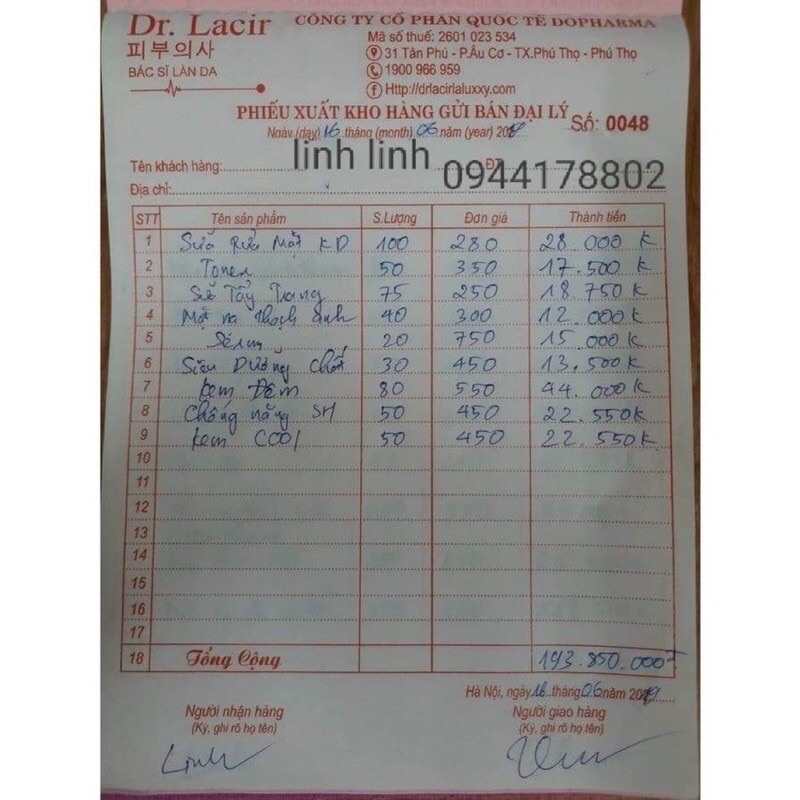 Dr. Lacir
피부의사
BÁC SĨ LÀN DA
CÔNG TY CỔ PHẦN QUỐC TẾ DOPHARMA
Mã số thuế: 2601 023 534
31 Tân Phú - P.Âu Cơ - TX.Phú Thọ - Phú Thọ
1900 966 959
Http://drlacirlaluxxy.com
PHIẾU XUẤT KHO HÀNG GỬI BÁN ĐẠI LÝ
Số: 0048
Ngày (day) 16 tháng (month) 06 năm (year) 20
Tên khách hàng: linh linh ĐT 0944178802
Địa chỉ:
STT Tên sản phẩm S.Lượng Đơn giá Thành tiền
1 Sữa Rửa Mặt KD 100 280 28 000 K
2 Toner 50 350 17.500 K
3 Sữ Tẩy Trang 75 250 18.750 K
4 Mặt nạ thạch anh 40 300 12.000 K
5 Serum 20 750 15 000 K
6 Siêu Dưỡng chất 30 450 13,500 K
7 Kem Đêm 80 550 44.000 K
8 Chống nắng SH 50 450 22.550K
9 kem COOl 50 450 22.550K
10
11
12
13
14
15
16
17
18 Tổng Cộng 193.850.000
Hà Nội, ngày 16 tháng 06 năm 2019
Người nhận hàng Người giao hàng
(Ký, ghi rõ họ tên) (Ký, ghi rõ họ tên)
Linh